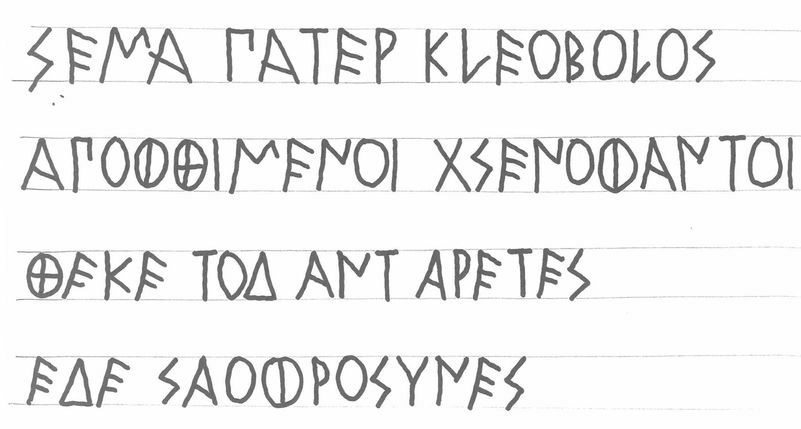 ΣΕΜΑ ΠΑΤΕΡ ΚΛΕΟΒΟΛΟΣ
ΑΠΟΦΘΙΜΕΝΟΙ ΧΣΕΝΟΦΑΝΤΟΙ
ΘΕΚΕ ΤΟΔ ΑΝΤ ΑΡΕΤΕΣ
ΕΔΕ ΣΑΟΦΡΟΣΥΝΕΣ